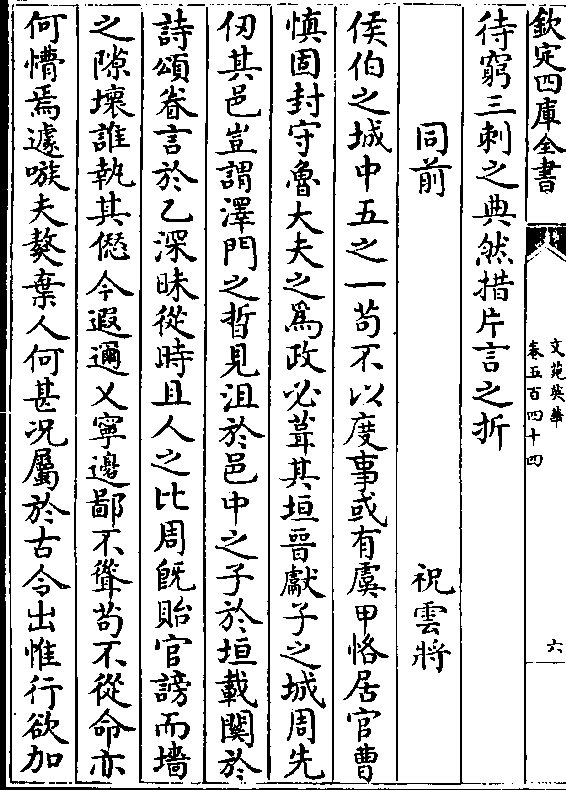 欽定四庫全書
文苑英華
卷五百四十四
六
待窮三刺之典然措片言之折
同前
祝雲將
侯伯之城中五之一茍不以度事或有虞甲恪居官曹
慎固封守魯大夫之為政必葺其垣晉獻子之城周先
仞其邑豈謂澤門之晳見沮於邑中之子於垣載闋於
詩頌眷言於乙深昧從時且人之比周旣貽官謗而墻
之隙壞誰執其愆今遐邇乂寧邊鄙不聳茍不從命亦
何懵焉遽嗾夫獒棄人何甚况屬於古令出惟行欲加